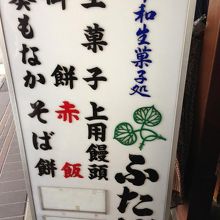 和生菓子処
ふた
生菓子上用饅頭
餅赤飯
もなかそば餅